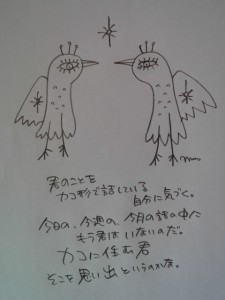 君のことを
カコ形で話している
自分に気づく。
今日の、今週の、今月の話の中に
もう君はいないのだ。
カコに住む君
そこを思い出というのかな。